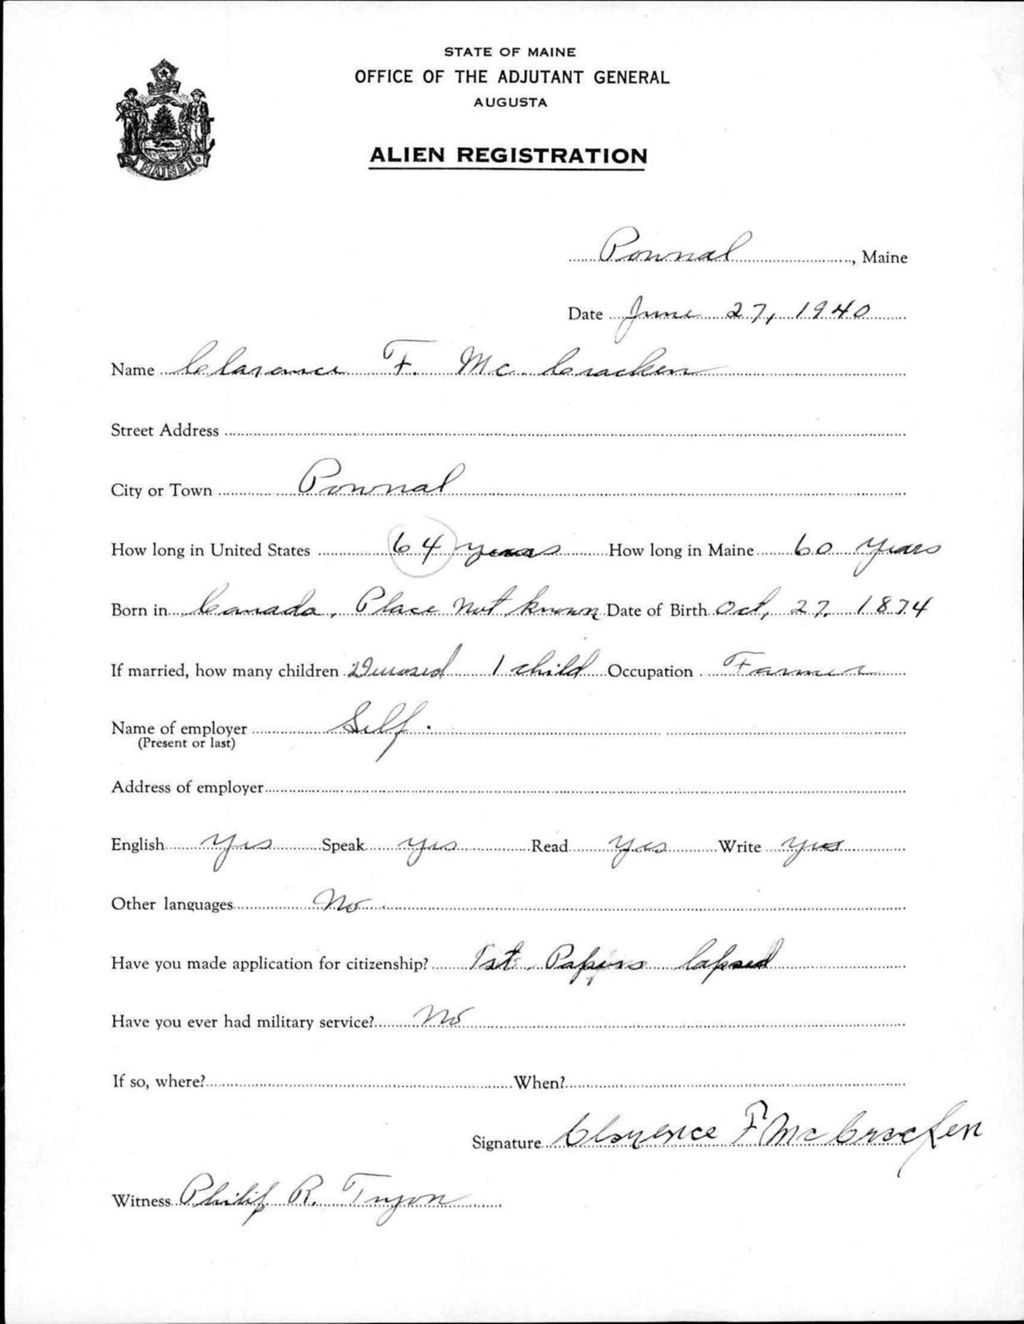 STATE OF MAINE
OFFICE OF THE ADJUTANT GENERAL
AUGUSTA
ALIEN REGISTRATION
MAINE
Pownal, Maine
Date June 27, 1940
Name Clarence F. McCracken
Street Address
City or Town Pownal
How long in United States 64 years How long in Maine 60 years
Born in Canada, Place Not known Date of Birth Oct, 27, 1874
If married, how many children 1 child Occupation Farmer
Name of employer Self.
(Present or last)
Address of employer
English Yes Speak Yes Read Yes Write Yes
Other languages No.
Have you made application for citizenship? 1st. Papers lapsed
Have you ever had military service? No
If so, where? When?
Signature Clarence F McCracken
Witness Philip R. Tryon